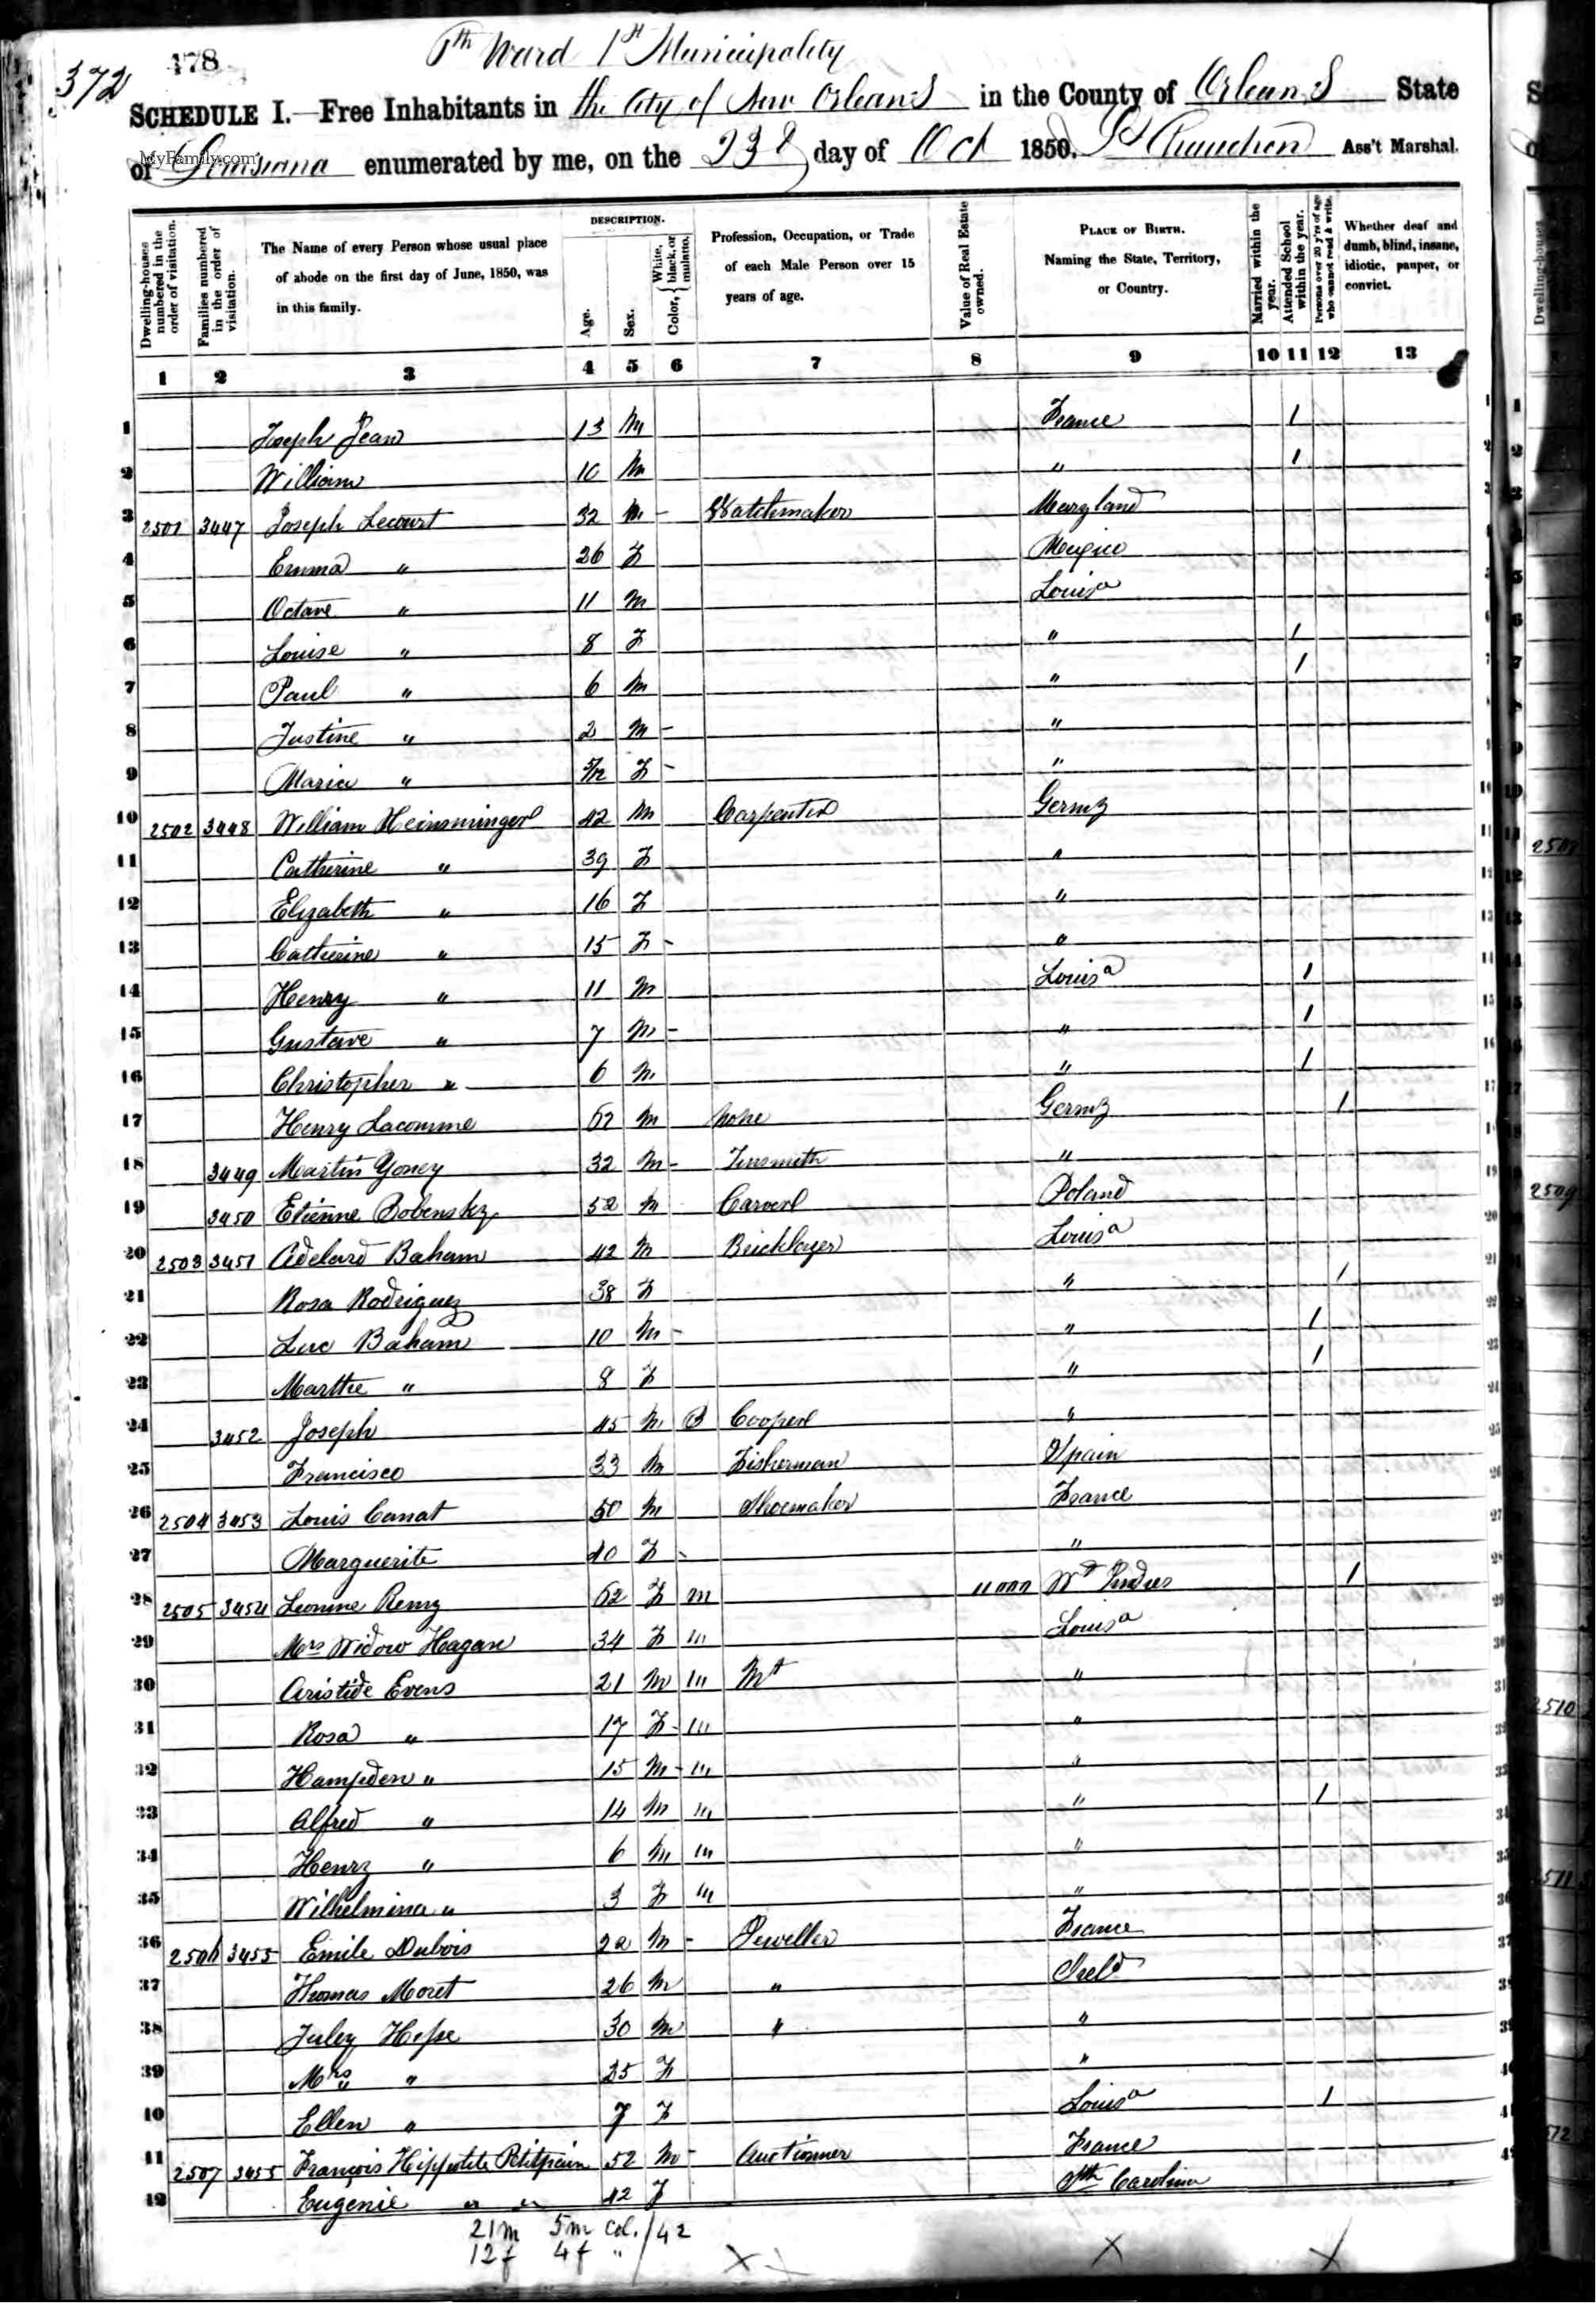 478
372
6th Ward 1st Municipality
SCHEDULE I.—Free Inhabitants in the City of New Orleans in the County of Orleans State
of Louisiana enumerated by me, on the 23d day of Oct 1850. Ass't Marshal.
MyFamily.com
Dwelling-houses numbered in the order of visitation.
Families numbered in the order of visitation.
The Name of every Person whose usual place of abode on the first day of June, 1850, was in this family.
DESCRIPTION.
Age.
Sex.
Color, { White, black, or mulatto.
Profession, Occupation, or Trade of each Male Person over 15 years of age.
Value of Real Estate owned.
PLACE OF BIRTH. Naming the State, Territory, or Country.
Married within the year.
Attended School within the year.
Persons over 20 y'rs of age who cannot read & write.
Whether deaf and dumb, blind, insane, idiotic, pauper, or convict.
1 2 3 4 5 6 7 8 9 10 11 12 13
1 Joseph Jean 13 M France 1
2 William 10 M " 1
3 2501 3447 Joseph Lecourt 32 M - Watchmaker Maryland
4 Emma " 26 F Mexico
5 Octave " 11 M Louisa
6 Louise " 8 F " 1
7 Paul " 6 M " 1
8 Justine " 2 M - "
9 Maria " 5/12 F - "
10 2502 3448 William Heinsminger 42 M Carpenter Germy
11 Catherine " 39 F "
12 Elizabeth " 16 F "
13 Catherine " 15 F - "
14 Henry " 11 M Louisa 1
15 Gustave " 7 M - " 1
16 Christopher " 6 M " 1
17 Henry Lacomme 62 M none Germy 1
18 3449 Martin Yoney 32 M - Tinsmith "
19 3450 Etienne Bobensky 52 M Carver Poland
20 2503 3451 Adelard Baham 42 M Bricklayer Louisa
21 Rosa Rodriguez 38 F " 1
22 Luc Baham 10 M - " 1
23 Marthe " 8 F " 1
24 3452 Joseph 45 M B Cooper "
25 Francisco 33 M Fisherman Spain
26 2504 3453 Louis Canat 50 M Shoemaker France
27 Marguerite 40 F - "
28 2505 3454 Remy 62 F m 11000 Wt Indies 1
29 Mrs Widow Hagan 34 F m Louisa
30 Aristide Evens 21 M m Mt "
31 Rosa " 17 F - m "
32 Hampden " 15 M - m "
33 Alfred " 14 M m " 1
34 Henry " 6 M m "
35 Wilhelmina " 3 F m "
36 2506 3455 Emile Dubois 22 M - Jeweller France
37 Thomas Moret 26 M " Ireld
38 Juley Hesse 30 M " "
39 Mrs " " 25 F "
40 Ellen " 7 F Louisa 1
41 2507 3455 François Hippolite Petitpain 52 M - Auctionner France
42 Eugenie " " 42 F Sth Carolina
21m 5m col. / 42
12f 4f "
2508
2509
2510
2511